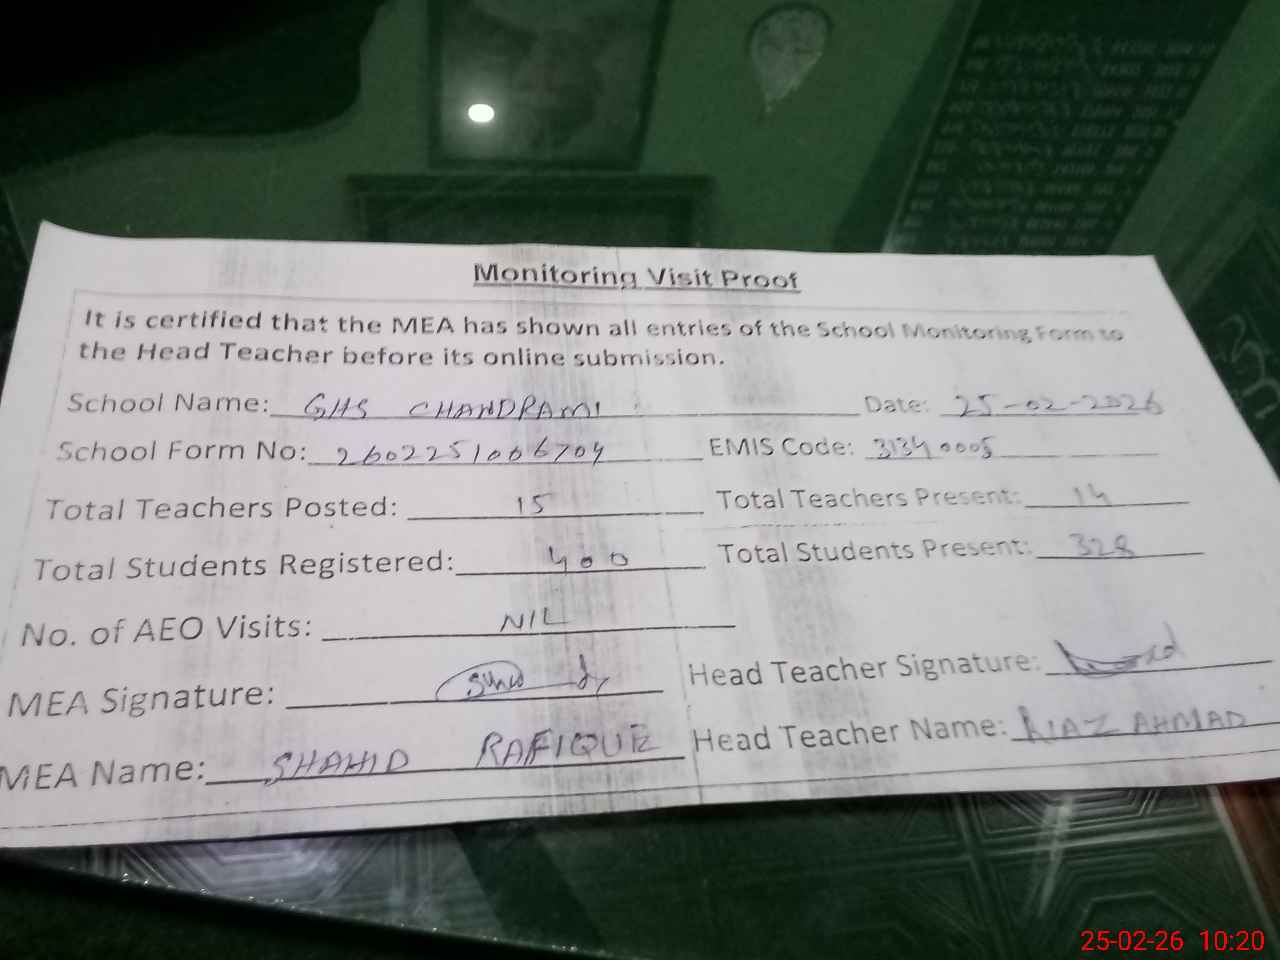 Monitoring Visit Proof
It is certified that the MEA has shown all entries of the School Monitoring Form to
the Head Teacher before its online submission.
School Name: GHS CHANDRAMI Date: 25-02-2026
School Form No: 2602251006704 EMIS Code: 31340005
Total Teachers Posted: 15 Total Teachers Present: 14
Total Students Registered: 400 Total Students Present: 328
No. of AEO Visits: NIL
MEA Signature: Head Teacher Signature:
MEA Name: SHAHID RAFIQUE Head Teacher Name: RIAZ AHMAD
25-02-26 10:20